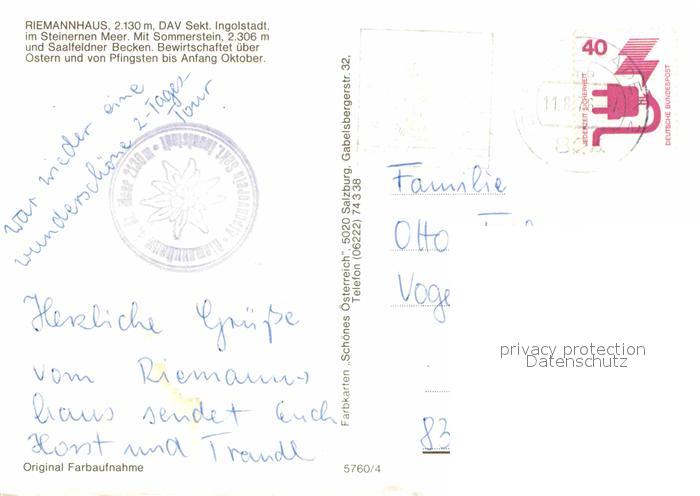 RIEMANNHAUS, 2.130 m, DAV Sekt. Ingolstadt,
im Steinernen Meer. Mit Sommerstein, 2.306 m
und Saalfeldner Becken. Bewirtschaftet über
Ostern und von Pfingsten bis Anfang Oktober.
war wieder eine
wunderschöne 2-Tages-
Tour
Herzliche Grüße
vom Riemann-
haus sendet Euch
Horst und Traudl
Original Farbaufnahme
5760/4
Farbkarten „Schönes Österreich", 5020 Salzburg, Gabelsbergerstr. 32,
Telefon (06222) 74 3 38
40
JEDERZEIT SICHERHEIT
DEUTSCHE BUNDESPOST
11.8
Familie
Otto
Voge
83
privacy protection
Datenschutz